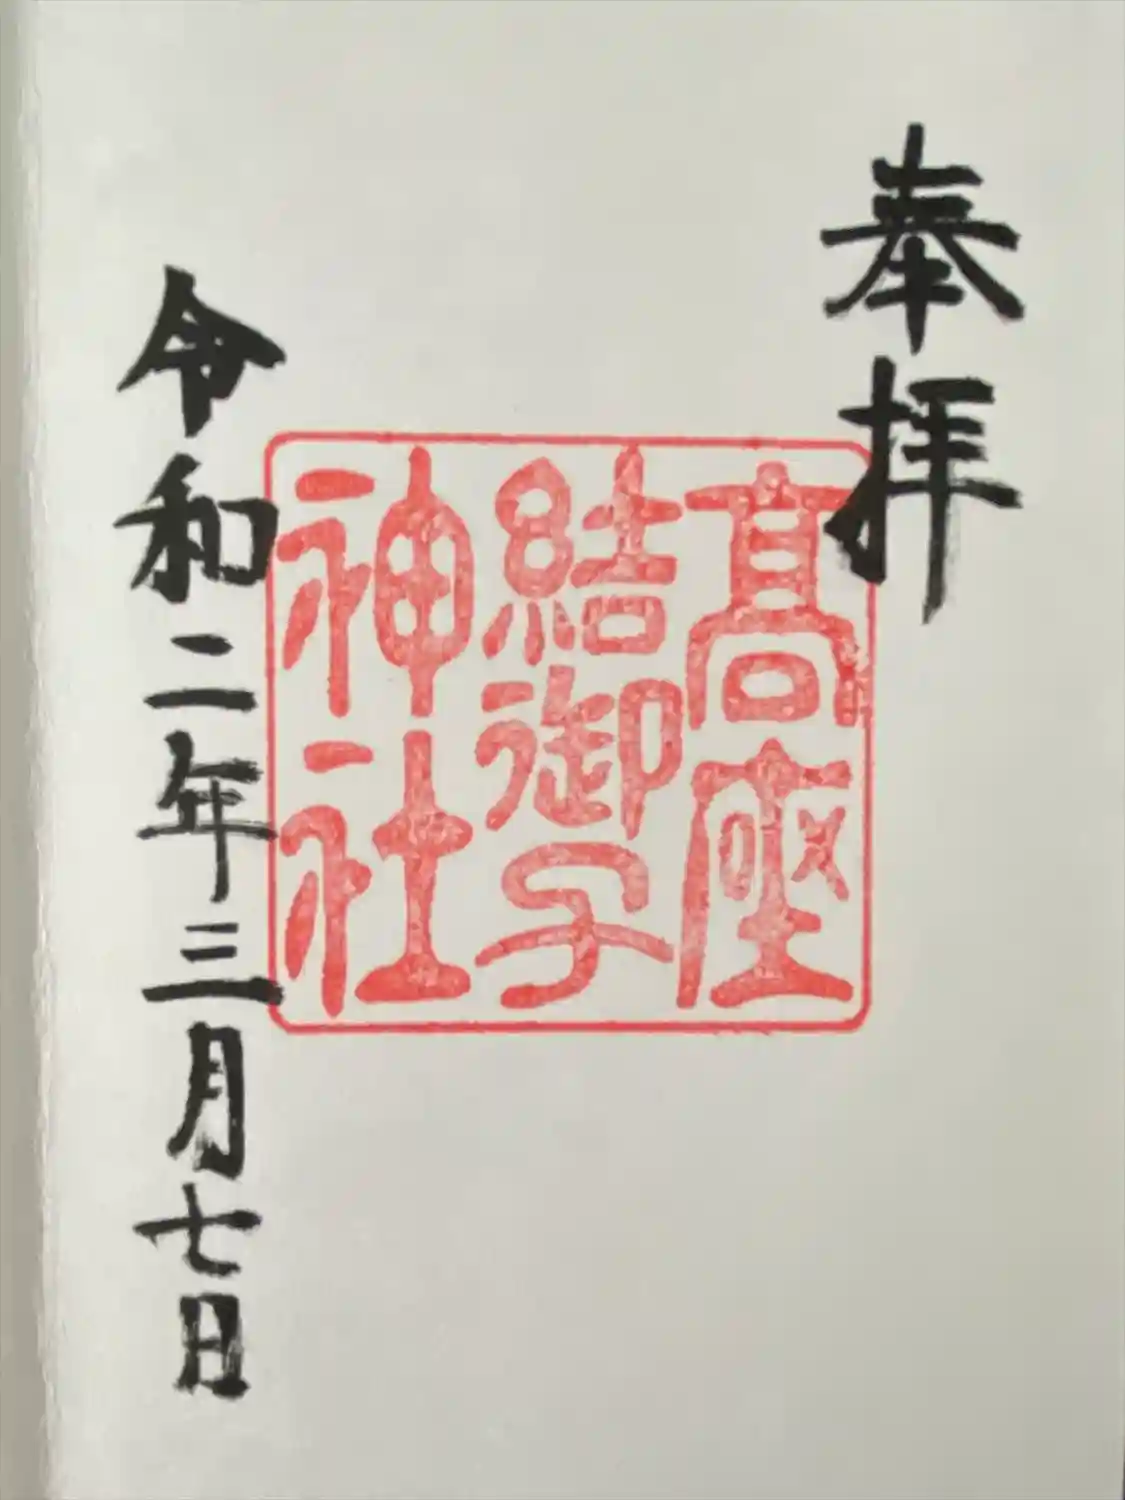 奉拝
髙座
結御子
神社
令和二年三月七日